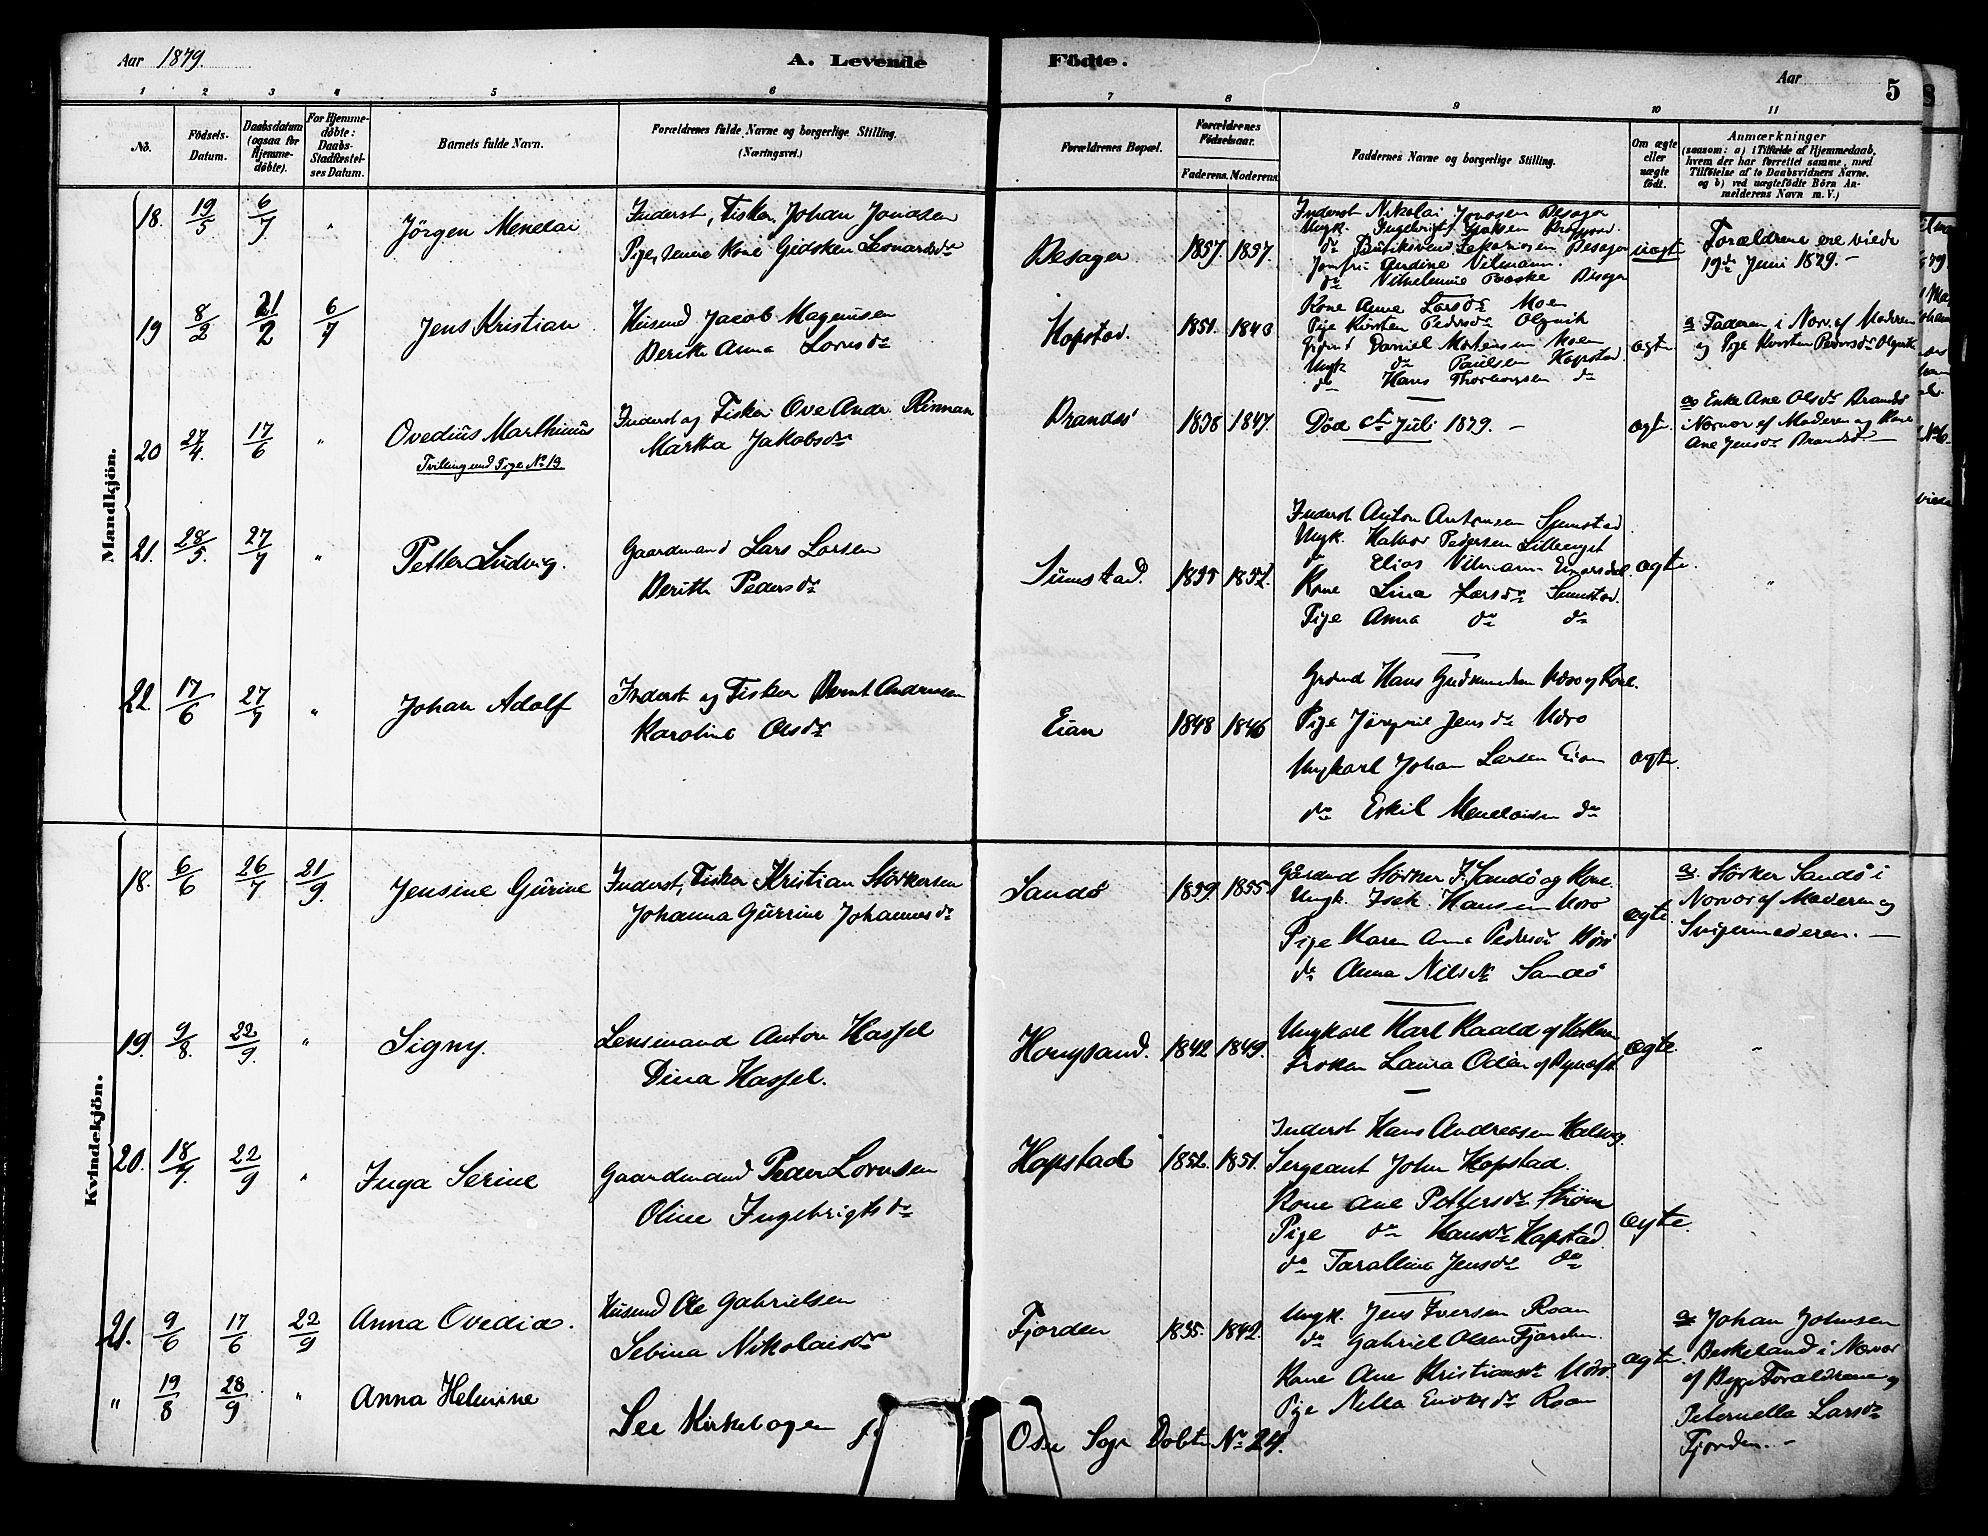 Aar 1879.
A. Levende Födte.
Aar
5
1 2 3 4 5 6 7 8 9 10 11
No.
Födsels-
Datum.
Daabsdatum
(ogsaa for
Hjemme-
døbte).
For Hjemme-
døbte:
Daabs-
Stadfæstel-
ses Datum.
Barnets fulde Navn.
Forældrenes fulde Navne og borgerlige Stilling.
(Næringsvei.)
Forældrenes Bopæl.
Forældrenes
Födselsaar.
Faderens. Moderens.
Faddernes Navne og borgerlige Stilling.
Om ægte
eller
uægte
födt.
Anmærkninger
(saasom: a) i Tilfælde af Hjemmedaab,
hvem der har forrettet samme, med
Tilføielse af to Daabsvidners Navne.
og b) ved uægtefödte Börn An-
melderens Navn m. V.)
Mandkjön.
18. 19/5 6/7 "
Jörgen Menelai
Inderst, Fisker, Johan Jonasen
Pige, senere Kone Gidsken Leonardsdr
Besager 1857. 1857.
Inderst Nikolai Jonasen Besager
Jomfru Andine Vilmann
do Vilhelmine Besager
uægte
Forældrene ere viede
19de Juni 1879. -
19 8/2 21/2 6/7
Jens Kristian
Husmd Jacob Magnusen
Berith Anna Lornsdr
Hopstad. 1851. 1843
Kone Anne Larsdr Moen
Pige Kirsten Pedersdr
Daniel Mortensen Moen
Ungk do Paulsen Hopstad
do Hans do
ægte
a Faderen, i Nærv. af Moderen
og Pige Kirsten Pedersdr
20 27/4. 17/6 "
Ovedius Marthinus
Tvilling med Pige No 19
Inderst og Fisker Ove Andr.
Martha Jakobsdr
Brandsö 1838 1847.
Död Juli 1879. -
ægte.
a Enke Ane Olsdr Brandsö
i Nærvær af Moderen og Kone
Ane Jensdr Brandsö -
21. 28/5. 27/7 "
Petter Ludvig.
Gaardmand Lars Larsen
Berith Pedersdr
Sumstad. 1855 1852.
Inderst Anton Antonsen Sumstad
Ungk. Halvor Pedersen
do Elias Vilmann
Kone Lina Larsdr Sumstad.
Pige Anna do do
ægte.
"
22. 17/6 27/7 "
Johan Adolf
Inderst og Fisker Bernt Andersen
Karoline Olsdr
Eian 1848 1846
Hans Gudmundsen og Kone.
Pige Jensdr
Ungkarl Johan Larsen Eian
do Eskil Menelaisen do
ægte.
Kvindekjön.
18. 6/6 26/7 21/9
Jensine Gurine
Inderst, Fisker Kristian Störkersen
Johanna Gurrine Johannesdr
Sandö 1859. 1855
Störker J. Sandö og Kone.
Ungk. Isak Hansen
Pige Maren Anna Pedersdr
do Anna Nilsdr Sandö
ægte.
a. Störker Sandö i
Nærvær af Moderen og
Svigermoderen. -
19. 9/8. 22/9. "
Signy.
Lensmand Anton Hassel
Dina Hassel.
Hougsand. 1842 1849.
Ungkarl Karl Kaald af
Froken Laura
ægte.
"
20. 18/7 22/9 "
Inga Serine
Gaardmand Peder Lornsen
Oline Ingebrigtsdr
Hopstad 1852. 1851.
Inderst Hans Andreasen
Sergeant John Hopstad.
Kone Ane Pettersdr Ström
Pige do Hansdr Hopstad
do Jensdr do
ægte.
21. 9/6 17/6 22/9
Anna Ovedia.
Husmd Ole Gabrielsen
Sebina Nikolaisdr
Fjorden 1835. 1842.
Ungk. Jens Iversen Roan
do Gabriel Olsen Fjorden.
Kone Ane Kristiansdr
Pige Roan
ægte.
a Johan Johnsen
Beskeland i Nærvær
af Begge Forældrene og
Peternella Larsdr
Fjorden. -
" 19/8 28/9 "
Anna Helmine
See Kirkebogen f. Osen Sogn Döbte No 24.